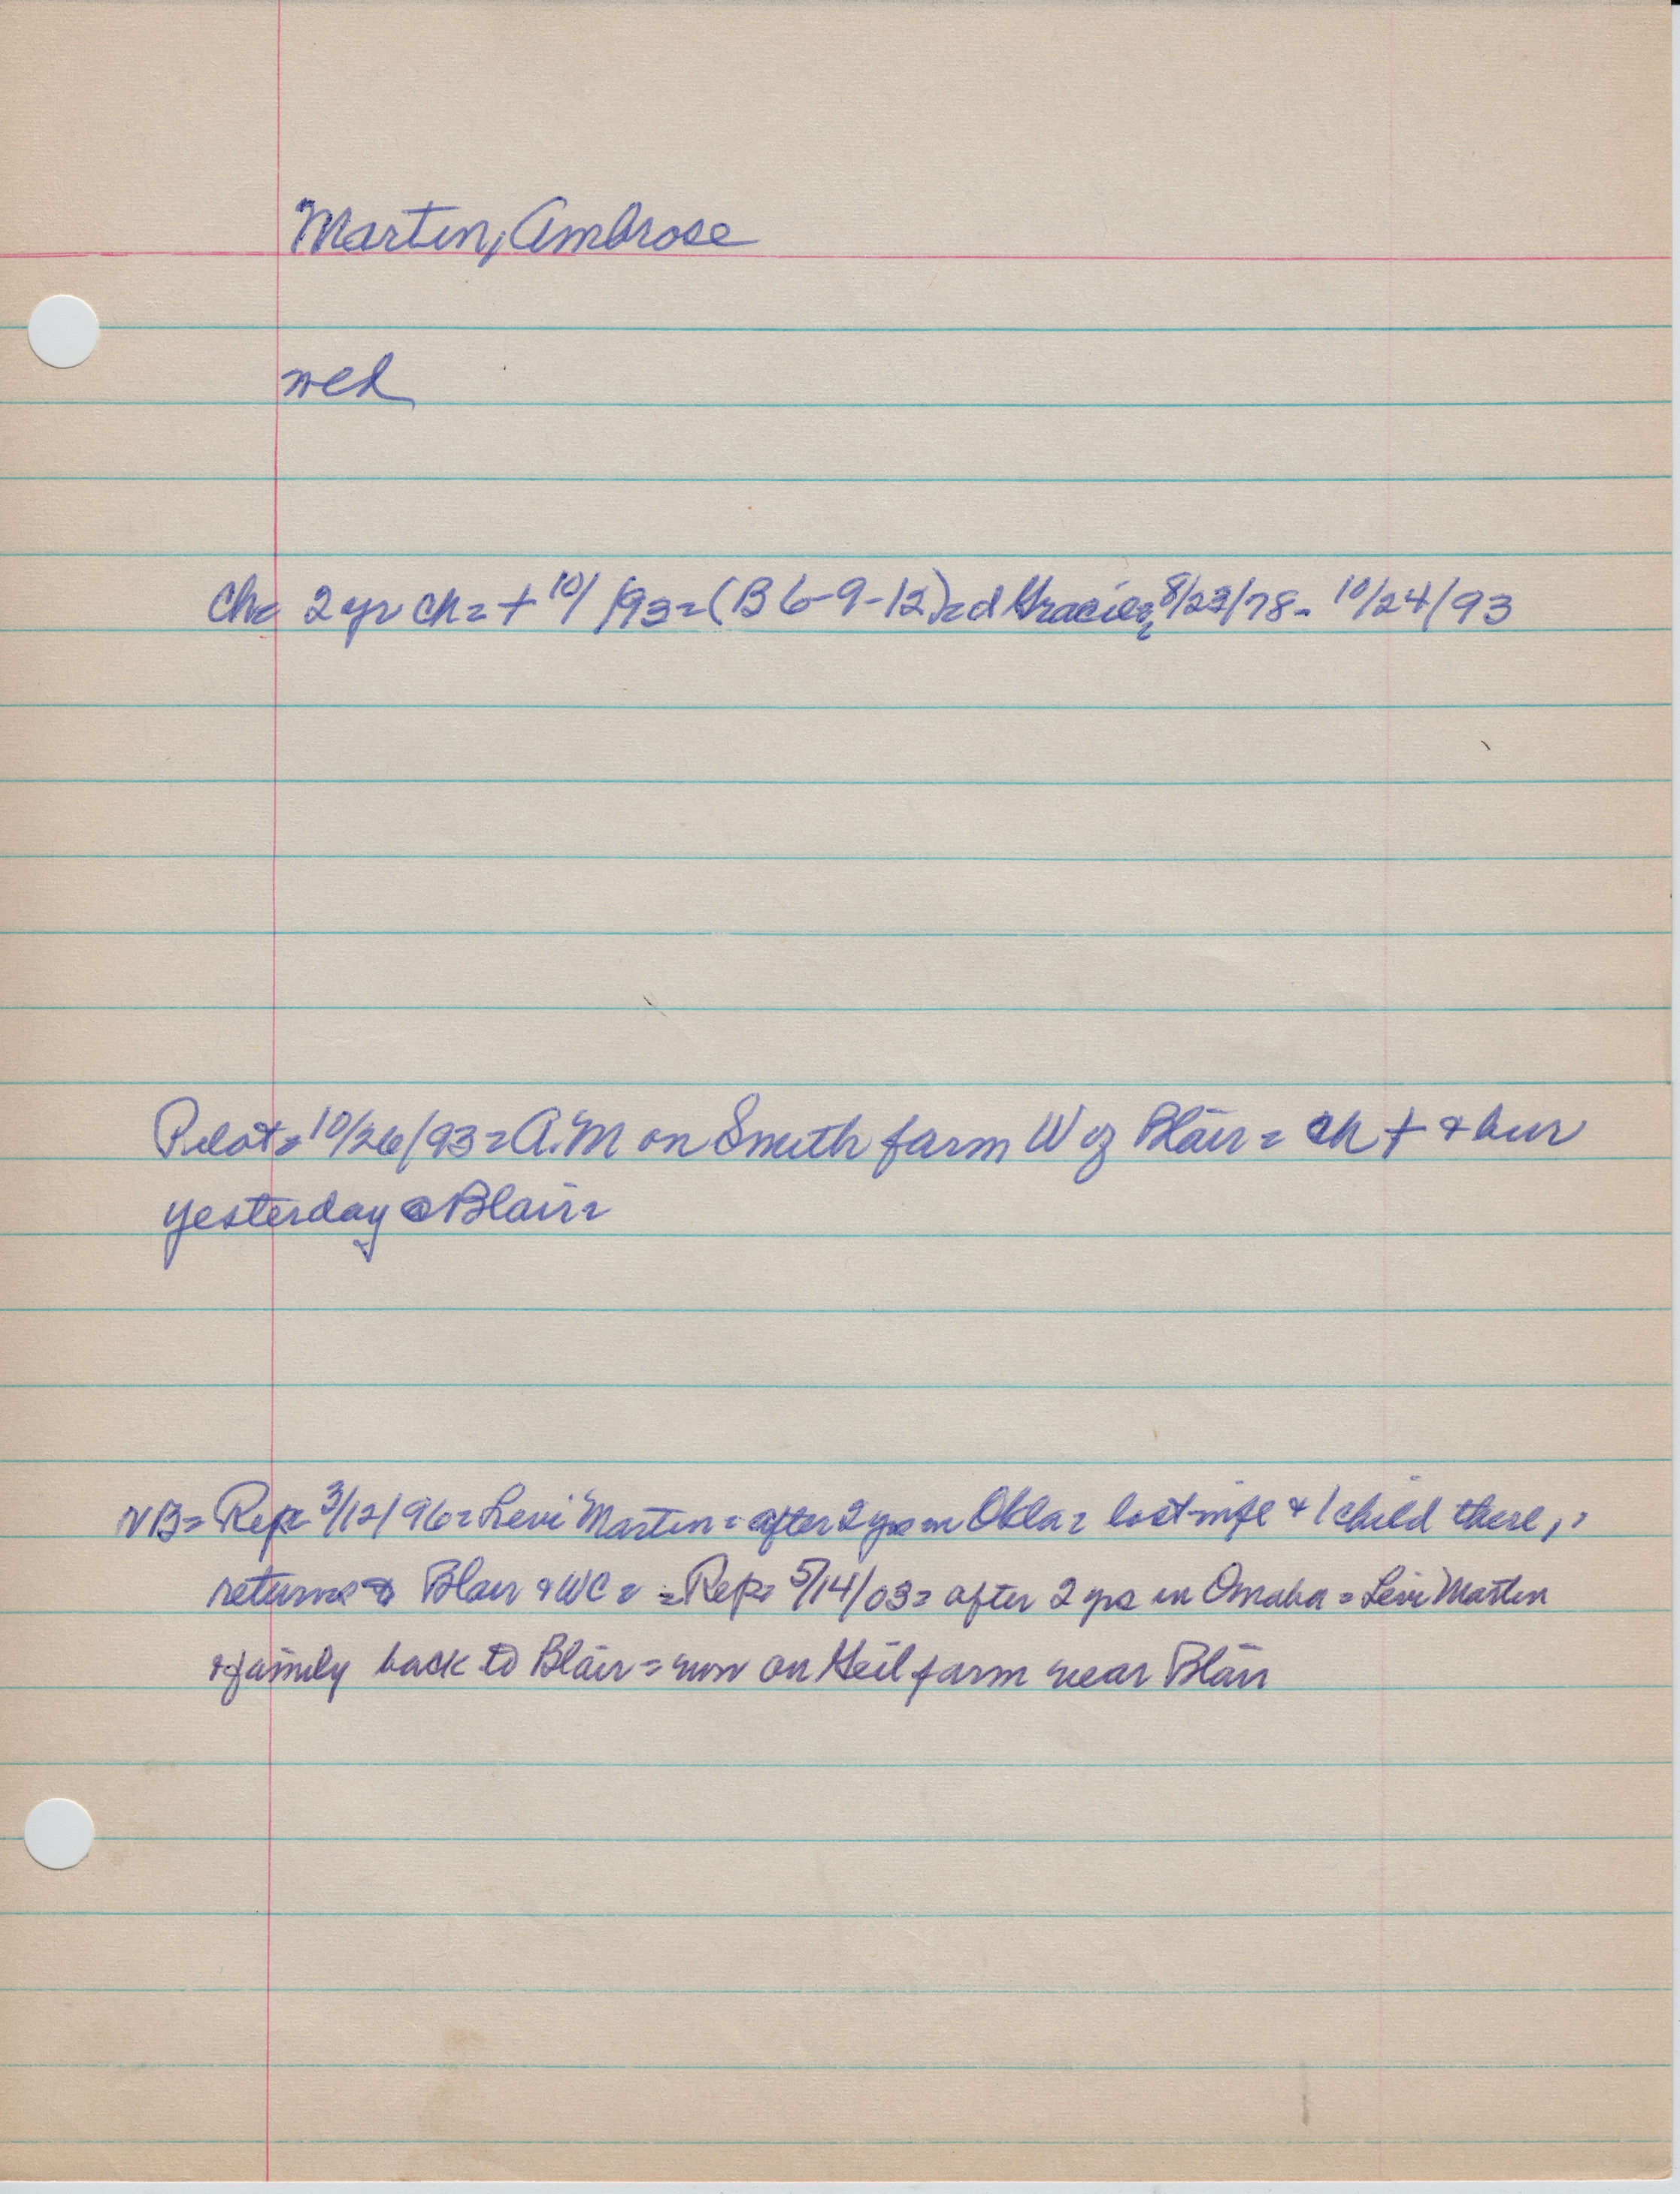 Martin, Ambrose
wed
Ch= 2 yr ch = + 10/ /93 = (B 6-9-12) = d Gracie = 8/23/78 - 10/24/93
Pilot = 10/26/93 = A.M on Smith farm W of Blair = ch + & bur
yesterday @ Blair =
NB = Rep = 3/12/96 = Levi Martin = after 2 yrs in Okla = lost wife & 1 child there, =
returns to Blair & WC = = Rep = 5/14/03 = after 2 yrs in Omaha = Levi Martin
& family back to Blair = now on Heil farm near Blair